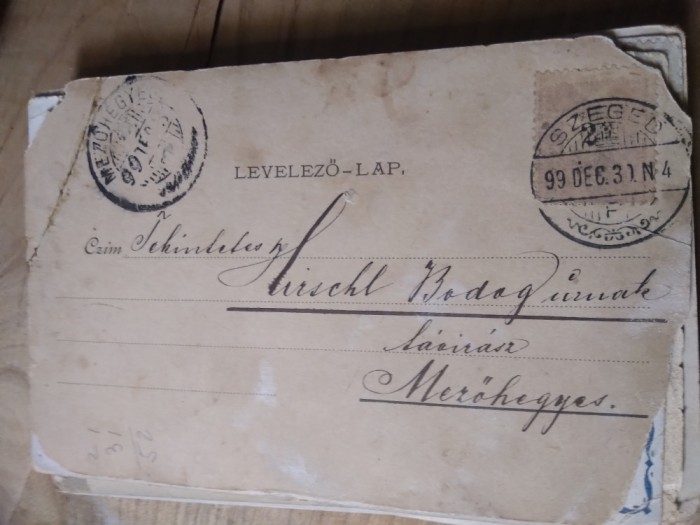 MEZŐHEGYES
99
SZEGED
99 DEC. 30. N 4
F
LEVELEZŐ-LAP.
2
Czím Tekintetes
Hirschl Bodog úrnak
távirász
Mezőhegyes.
21
31
52